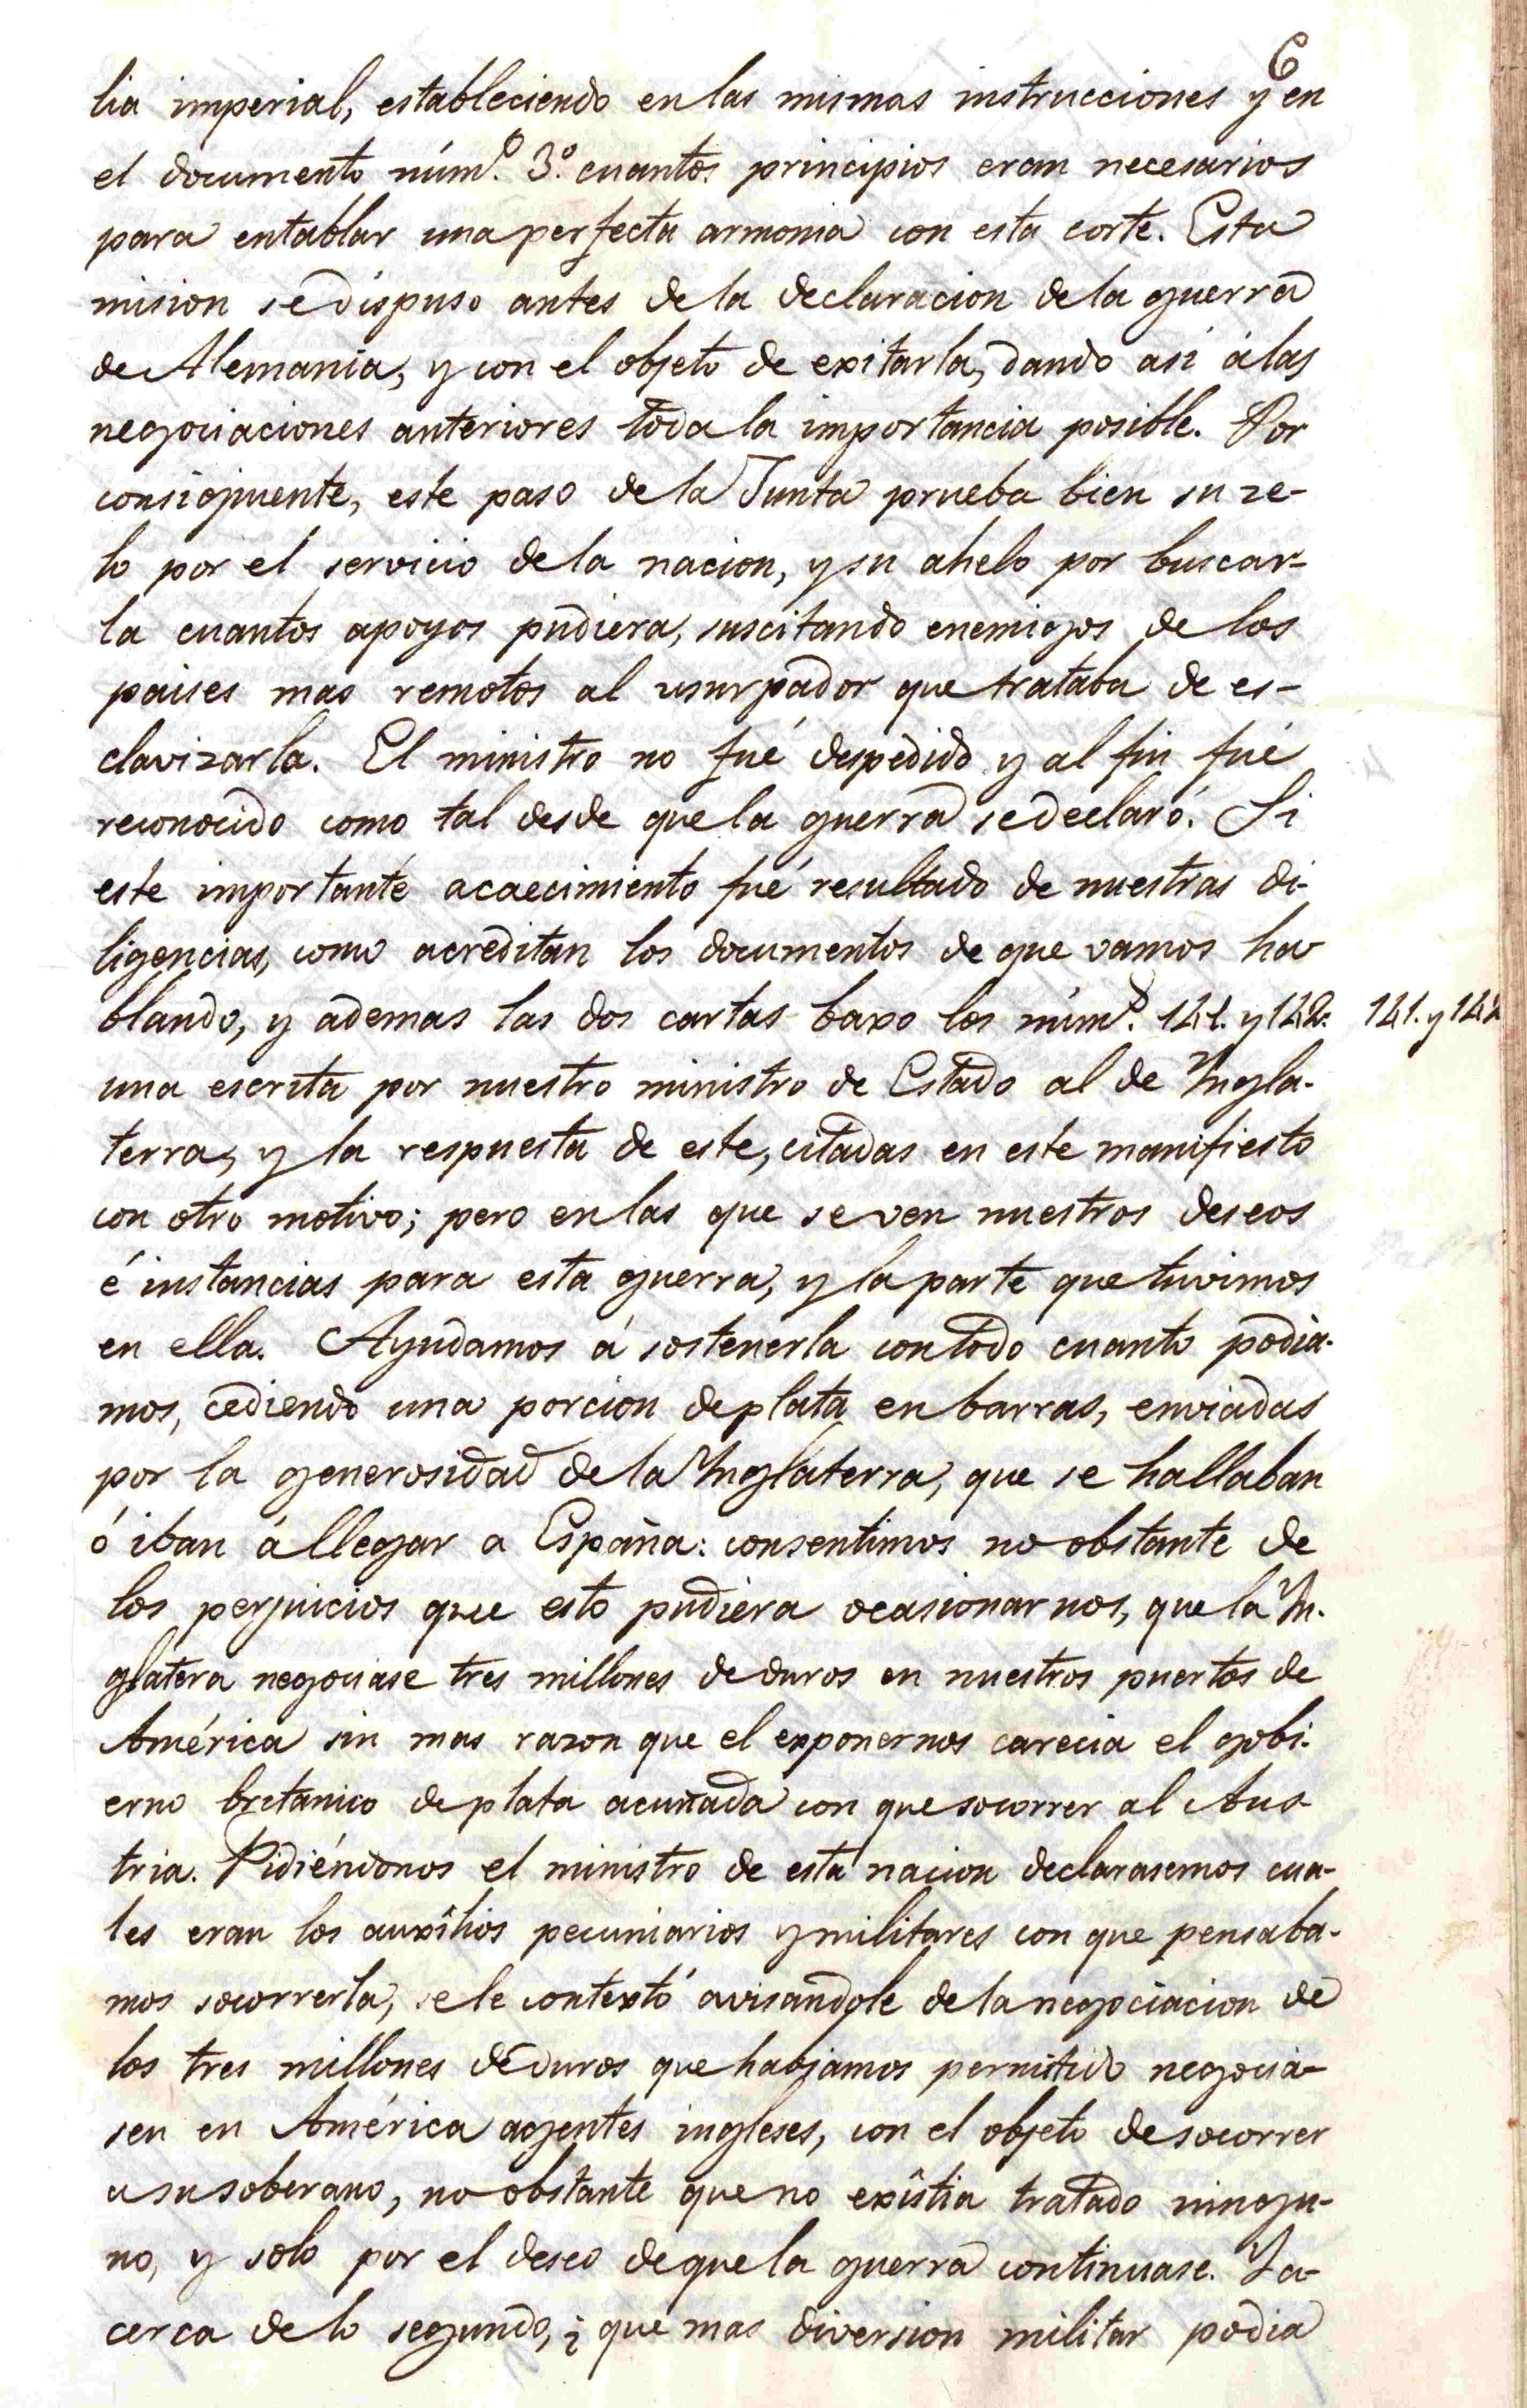 6
lia imperial, estableciendo en las mismas instrucciones y en
el documento núm.º 3.º cuantos principios eran necesarios
para entablar una perfecta armonia con esta corte. Esta
mision se dispuso antes de la declaracion de la guerra
de Alemania, y con el objeto de exitarla, dando asi á las
negociaciones anteriores toda la importancia posible. Por
consiguiente, este paso de la Junta prueba bien su ze-
lo por el servicio de la nacion, y su ahelo por buscar-
la cuantos apoyos pudiera, suscitando enemigos de los
paises mas remotos al usurpador que trataba de es-
clavizarla. El ministro no fué despedido y al fin fué
reconocido como tal desde que la guerra se declaró. Si
este importante acaecimiento fué resultado de nuestras di-
ligencias, como acreditan los documentos de que vamos ha
blando, y ademas las dos cartas baxo los núm.º 141. y 142. 141. y 142
una escrita por nuestro ministro de Estado al de Ingla-
terra, y la respuesta de este, citadas en este manifiesto
con otro motivo; pero en las que se ven nuestros deseos
é instancias para esta guerra, y la parte que tuvimos
en ella. Ayudamos á sostenerla con todo cuanto podia-
mos, cediendo una porcion de plata en barras, enviadas
por la generosidad de la Inglaterra, que se hallaban
ó iban á llegar a España: consentimos no obstante de
los perjuicios que esto pudiera ocasionarnos, que la In-
glatera negociase tres millones de duros en nuestros puertos de
América sin mas razon que el exponernos carecia el gobi-
erno bretanico de plata acuñada con que socorrer al Aus-
tria. Pidiéndonos el ministro de esta nacion declarasemos cua-
les eran los auxîlios pecuniarios y militares con que pensaba-
mos socorrerla, se le contextó avisandole de la negociacion de
los tres millones de duros que habiamos permitido negocia-
sen en América agentes ingleses, con el objeto de socorrer
a su soberano, no obstante que no exîstia tratado ningu-
no, y solo por el deseo de que la guerra continuase. Ya-
cerca de lo segundo, ¿ que mas diversion militar podia